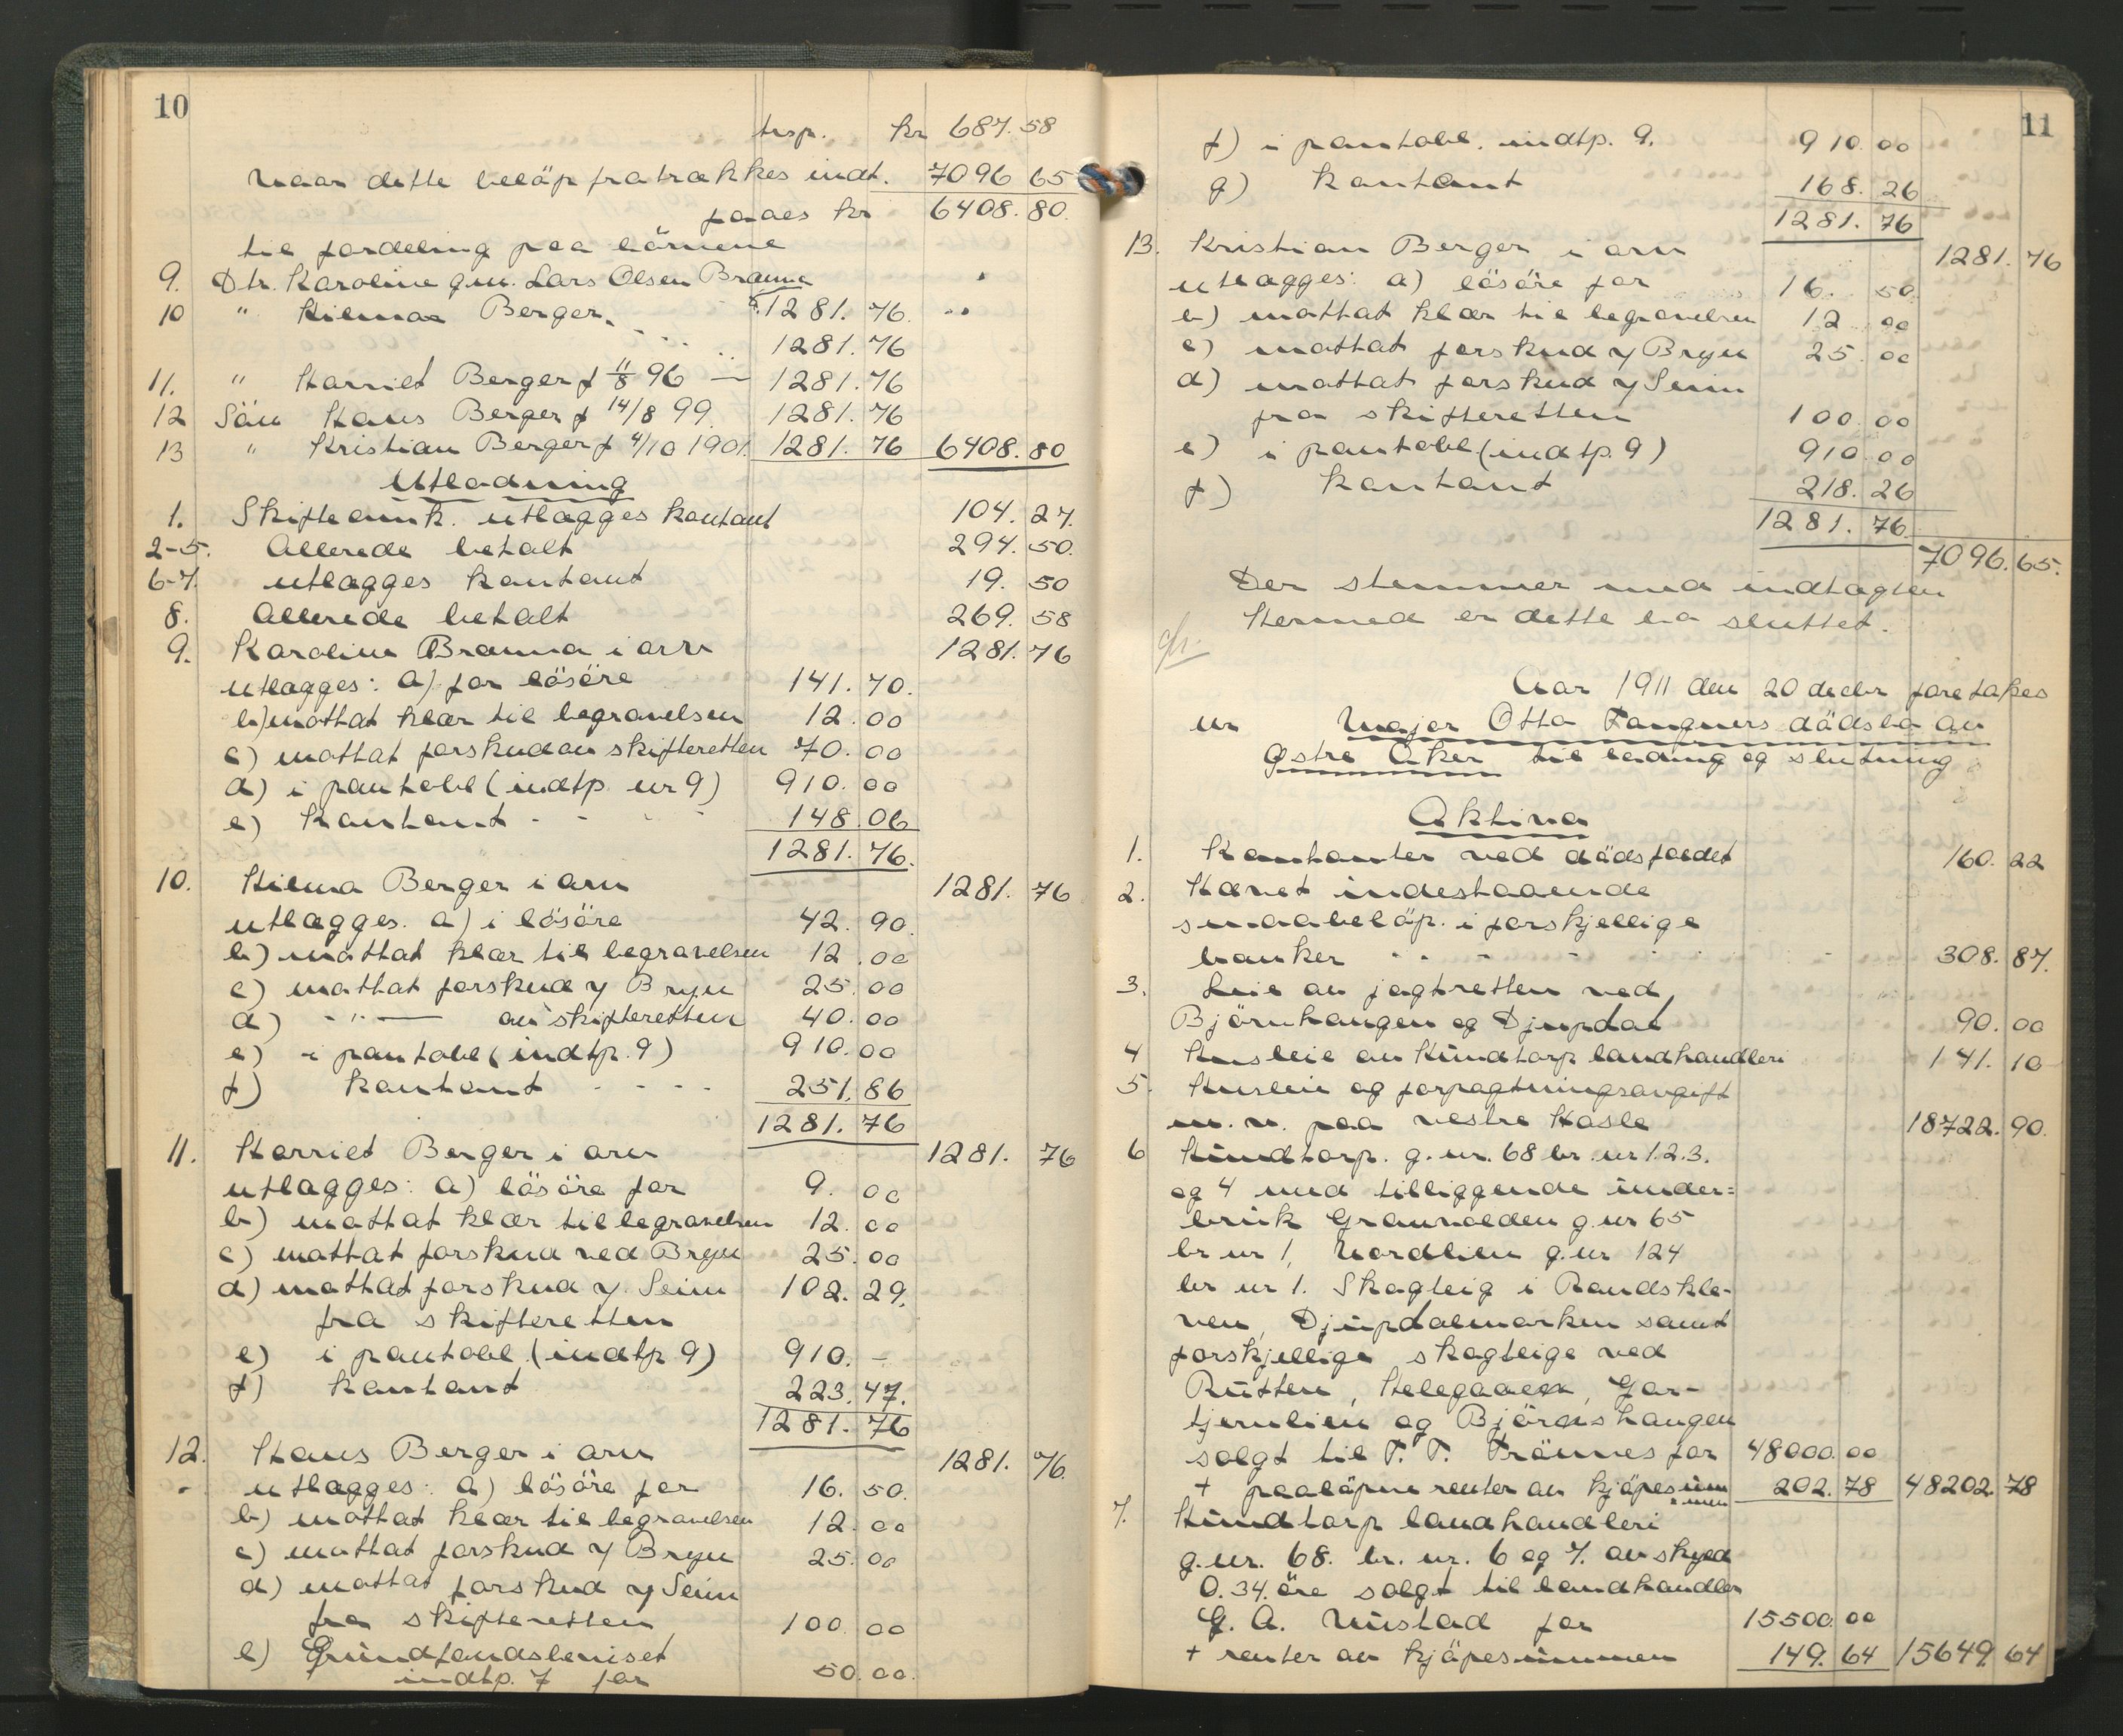 10
trsp. kr 687.58
Naar dette beløp fratrækkes indt. 7096 65
faaes kr 6408.80.
til fordeling paa börnene
9. Dtr. Karoline gm. Lars Olsen Branna
10 " Hilma Berger. 1281.76.
1281.76
11. " Harriet Berger f 11/8 96 — 1281.76
12 Sön Hans Berger f 14/8 99. 1281.76
13 " Kristian Berger f 4/10 1901. 1281.76 6408.80
Utlodning
1. Skifteomk. utlægges kontant 104.27.
2-5. Allerede betalt 294.50.
6-7. utlægges kontant 19.50
8. Allerede betalt 269.58
9. Karoline Branna i arv 1281.76
utlægges: a) for lösöre 141.70.
b) mottat klær til begravelsen 12.00
c) mottat forskud av skifteretten 70.00
d) i pantobl (indtp. nr 9) 910.00
e) kontant - - - - 148.06
1281.76.
10. Hilma Berger i arv 1281.76
utlægges. a) i lösöre 42.90.
b) mottat klær til begravelsen 12.00
c) mottat forskud v Bryn 25.00
d) - " — av skifteretten 40.00
e) i pantobl (indtp. 9) 910.00
f) kontant - - - - 251.86
1281.76
11. Harriet Berger i arv 1281.76
utlægges: a) lösöre for 9.00
b) mottat klær til begravelsen 12.00
c) mottat forskud ved Bryn 25.00
d) mottat forskud v. Seim 102.29.
fra skifteretten
e) i pantobl. (indtp 9) 910.-
f) kontant 223.47.
1281.76
12. Hans Berger i arv 1281.76.
utlægges: a) lösöre for 16.50.
b) mottat klær til begravelsen 12.00
c) mottat forskud v Bryn 25.00
d) mottat forskud v Seim
fra skifteretten 100.00
e) Grundfondsbeviset
indtp. 7 for 50.00.
11
f) i pantobl. indtp. 9. 910.00
g) kontant 168.26
1281.76
13. Kristian Berger i arv 1281.76
utlægges: a) lösöre for 16.50.
b) mottat klær til begravelsen 12.00
c) mottat forskud v Bryn 25.00
d) mottat forskud v Seim
fra skifteretten 100.00
e) i pantobl (indtp. 9) 910.00
f) kontant 218.26
1281.76.
7096.65.
Der stemmer med indtægten
Hermed er dette bo sluttet.
Aar 1911 den 20 decbr foretakes
nr Major Otto Fangners dödsbo av
Østre Aker til lodning og slutning
Aktiva
1. Kontanter ved dödsfaldet 160.22
2. Hævet indestaaende
smaabelöp. i forskjellige
banker - - - 308.87.
3. Leie av jagtretten ved
Björnhaugen og Djupdal 90.00
4 Husleie av Hundtorp landhandleri 141.10
5. Husleie og forpagtningsavgift
m. v. paa vestre Hasle 18722.90.
6 Hundtorp. g. nr. 68 br. nr 1.2.3.
og 4 med tilliggende under=
bruk Graunolden g. nr 65
br nr 1, Nordlien g. nr 124
br nr 1. Skogteig i Randskle-
ven, Djupdalmarken samt
forskjellige skogteige ved
Rutten, Helegaaen, Gar-
tjernlien og Björnshaugen
solgt til T. T. Frönnes for 48000.00
+ paalöpne renter av kjöpesum 202.78 48202.78
men
7. Hundtorp landhandleri
g. nr. 68. br. nr. 6 og 7. av skyld
0.34. öre solgt til landhandler
G. A. Nustad for 15500.00
+ renter av kjöpesummen 149.64 15649.64